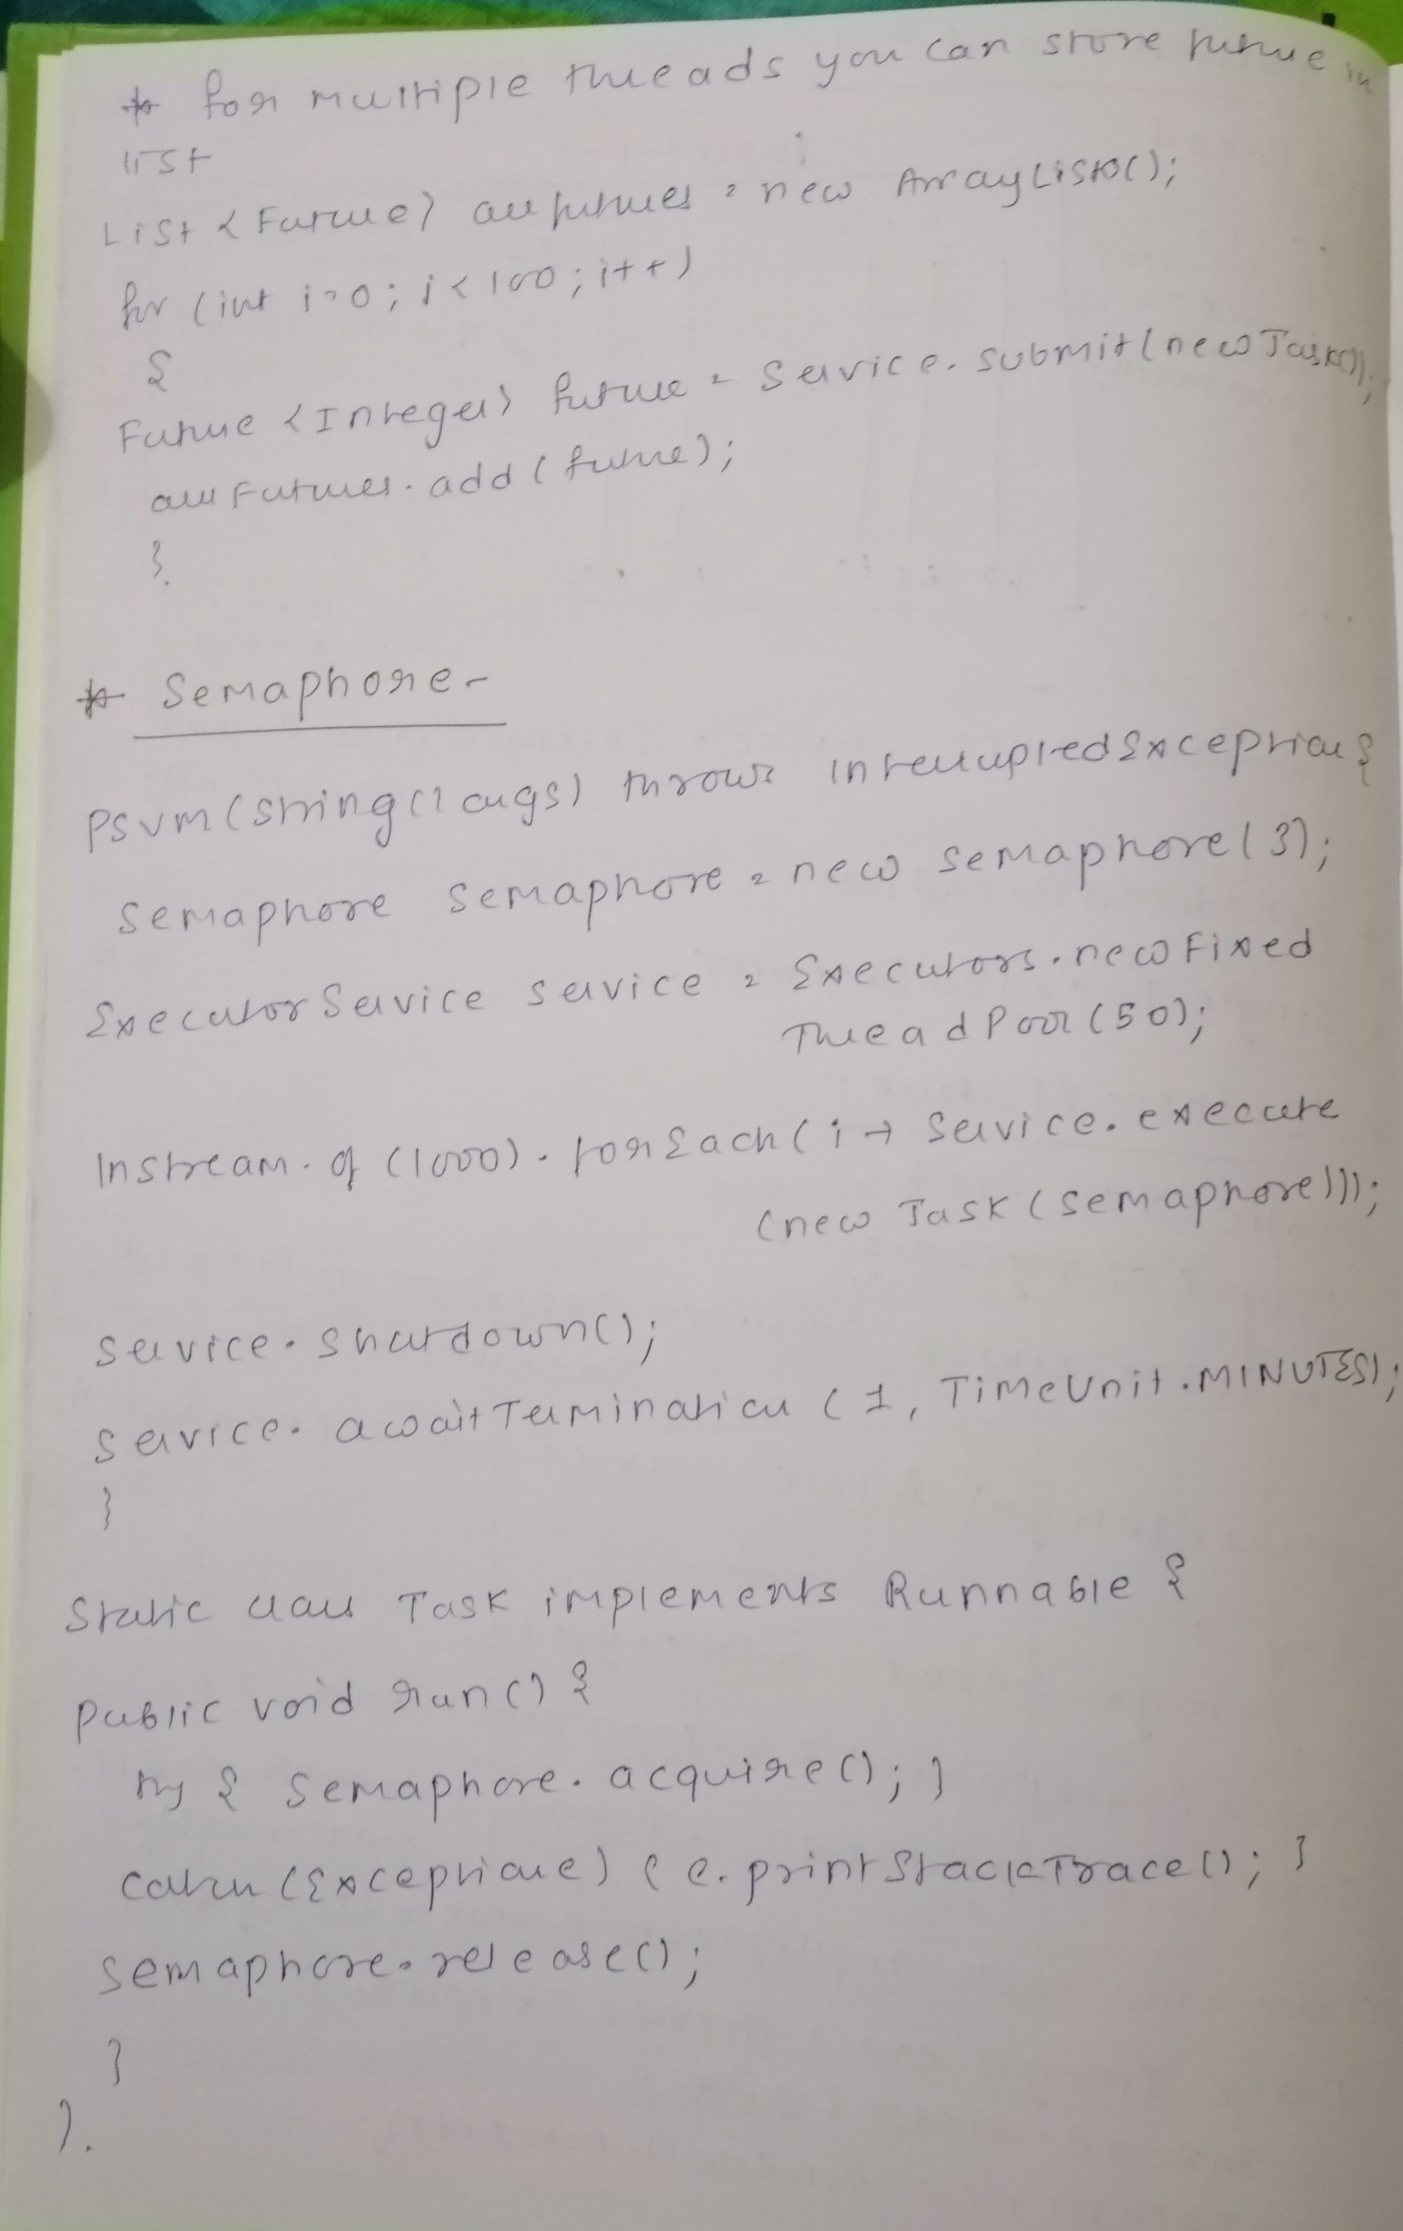 * for multiple threads you can store future in
list
List <Future> allfutures = new ArrayList<>();
for (int i=0; i<100; i++)
{
Future <Integer> future = service.submit(new Task());
allFutures.add(future);
}
* Semaphore-
psvm(String[] args) throws InterruptedException {
Semaphore semaphore = new semaphore(3);
ExecutorService service = Executors.newFixed
ThreadPool(50);
Instream.of(1000).forEach(i→ service.execute
(new Task(semaphore)));
service.shutdown();
service.awaitTermination(1, TimeUnit.MINUTES);
}
Static class Task implements Runnable {
public void run() {
try { semaphore.acquire(); }
catch (Exception e) { e.printStackTrace(); }
semaphore.release();
}
}.